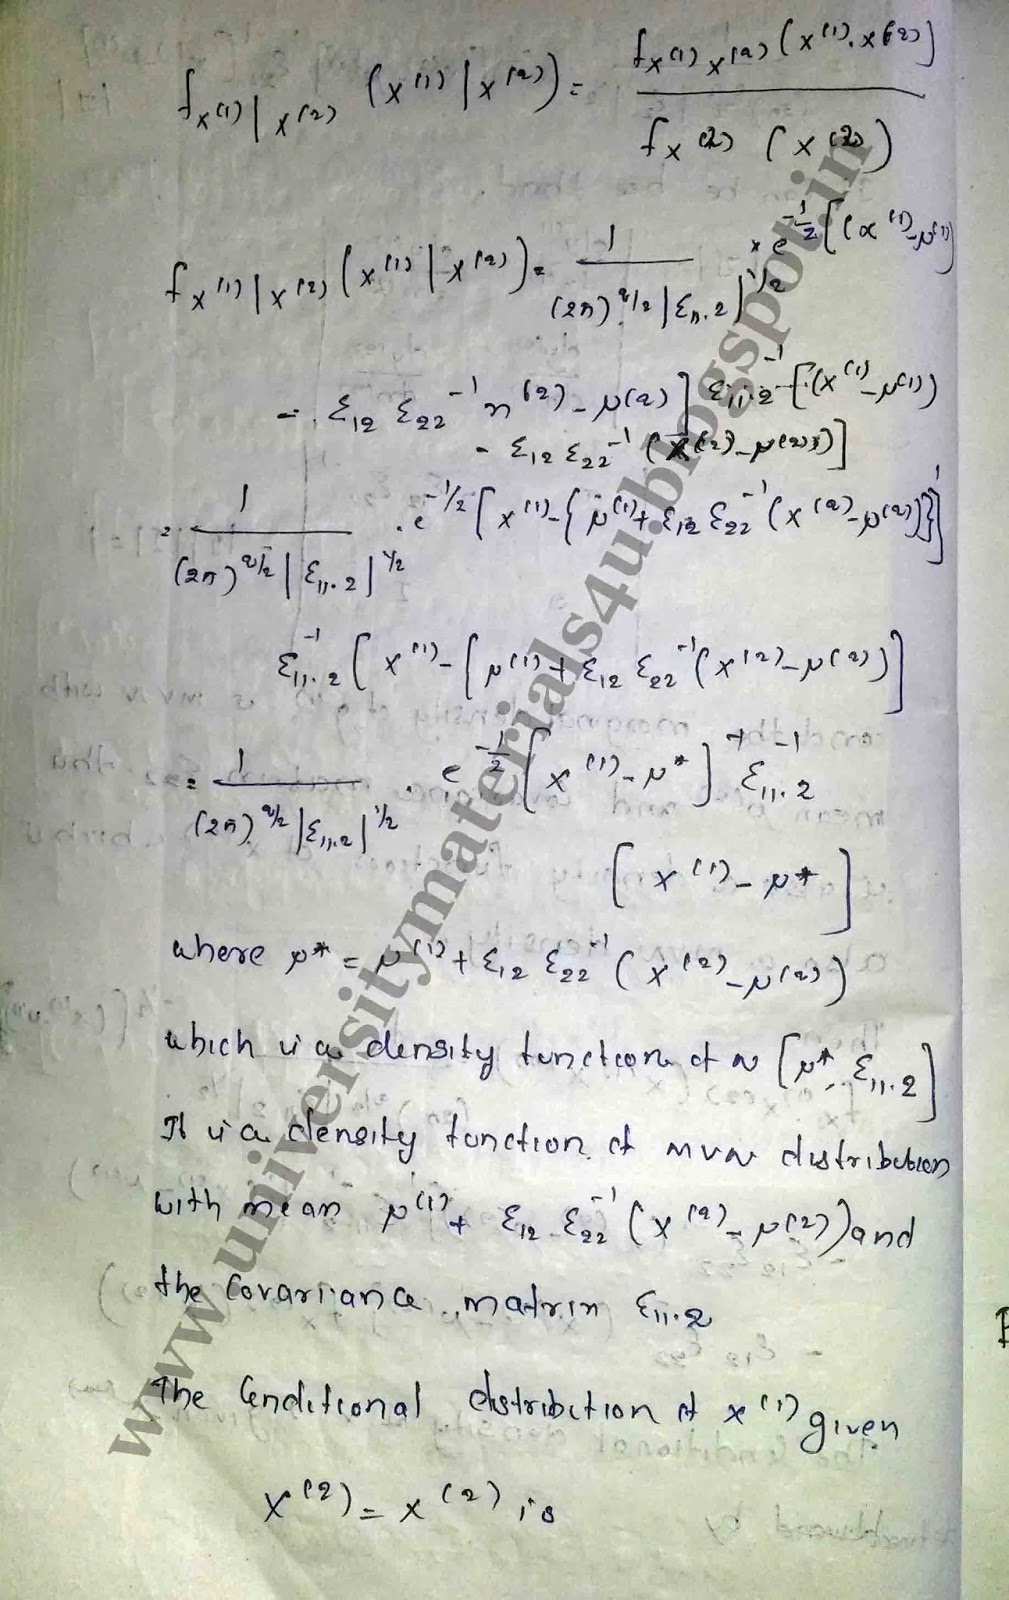 f_X(1)|X(2) (x^(1) | x^(2)) = f_X(1) X(2) (x^(1), x^(2)) / f_X(2) (x^(2))
f_X(1)|X(2) (x^(1) | x^(2)) = 1 / (2π)^q/2 |Σ11.2|^1/2 × e^-1/2 [(x^(1) - μ^(1))
- Σ12 Σ22^-1 x^(2) - μ(2)] Σ11.2^-1 [(x^(1) - μ(1))
- Σ12 Σ22^-1 (x^(2) - μ(2))]
= 1 / (2π)^q/2 |Σ11.2|^1/2 . e^-1/2 [x^(1) - {μ^(1) + Σ12 Σ22^-1 (x^(2) - μ^(2))}]'
Σ11.2^-1 [x^(1) - [μ^(1) + Σ12 Σ22^-1 (x^(2) - μ(2))]
= 1 / (2π)^q/2 |Σ11.2|^1/2 . e^-1/2 [x^(1) - μ*]^T Σ11.2^-1
[x^(1) - μ*]
where μ* = μ^(1) + Σ12 Σ22^-1 (x^(2) - μ(2))
which is a density function of N [μ*, Σ11.2]
It is a density function of MVN distribution
with mean μ^(1) + Σ12 Σ22^-1 (x^(2) - μ(2)) and
the covariance matrix Σ11.2
The Conditional distribution of x^(1) given
X^(2) = x^(2) is
www.universitymaterials4u.blogspot.in